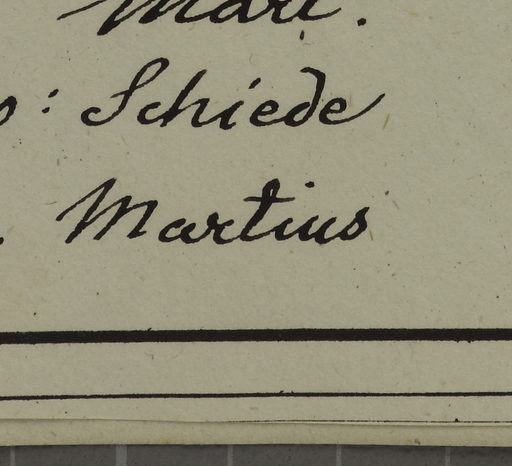 Mart.
: Schiede
. Martius